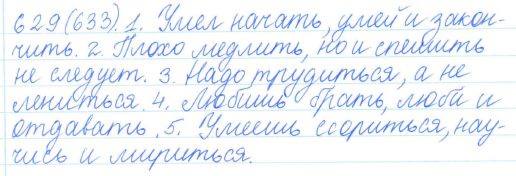 629(633). 1. Умел начать, умей и закон-
чить. 2. Плохо медлить, но и спешить
не следует. 3. Надо трудиться, а не
лениться. 4. Любишь брать, люби и
отдавать. 5. Умеешь ссориться, нау-
чись и мириться.